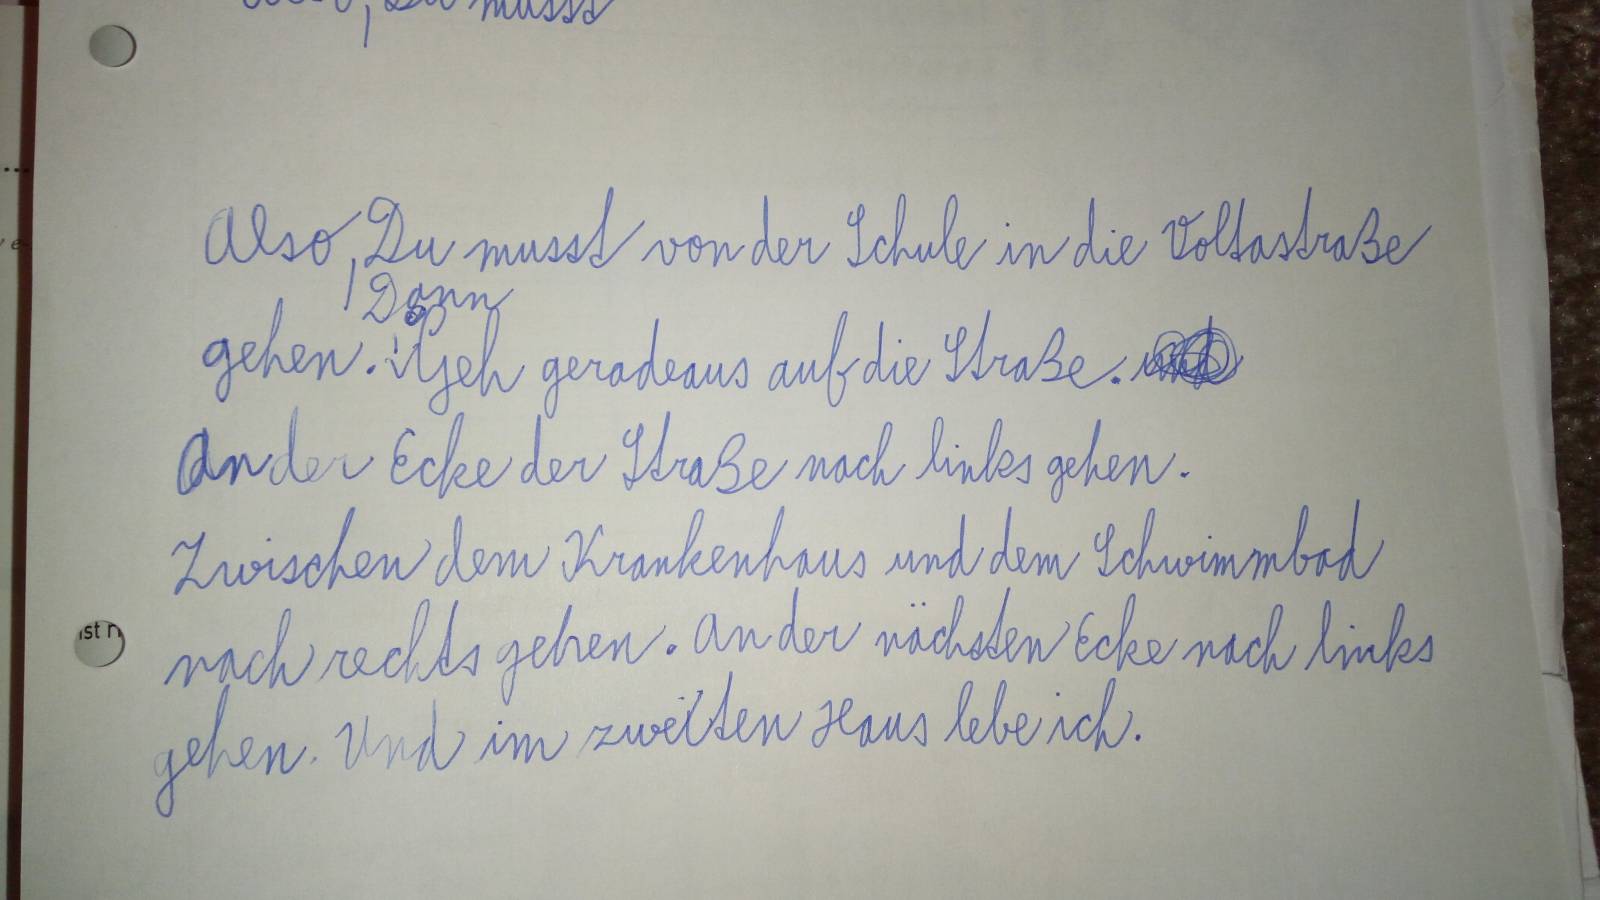 Also, Du musst
Also, Du musst von der Schule in die Voltastraße
Dann
gehen. Geh geradeaus auf die Straße.
An der Ecke der Straße nach links gehen.
Zwischen dem Krankenhaus und dem Schwimmbad
ist n
nach rechts gehen. An der nächsten Ecke nach links
gehen. Und im zweiten Haus lebe ich.